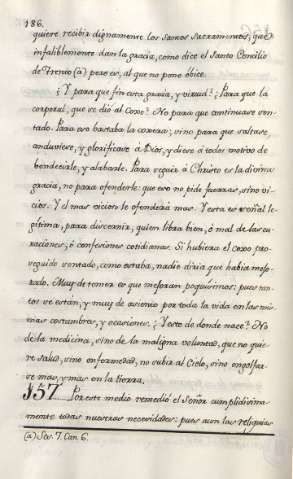 186.
quiere recibir dignamente los Santos Sacramentos, que
infaliblemente dan la gracia, como dice el Santo Concilio
de Trento (a) pero es, al que no pone óbice.
¿Y para que fin esta gracia, y virtud? ¿Para que la
corporal, que se dió al Coxo? No para que continuase sen-
tado. Para eso bastaba la coxera; sino para que saltase,
anduviese, y glorificase à Dios, y diese à todos motivo de
bendecirle, y alabarle. Para seguir à Christo es la divina
gracia, no para ofenderle: que eso no pide fuerzas, sino vi-
cios. Y el mas vicioso le ofenderà mas. Y esta es señal le-
gítima, para discernir, quien libra bien, ó mal de las cu-
raciones, ó confesiones cotidianas. Si hubiera el coxo pro-
seguido sentado, como estaba, nadie diria que habia mejo-
rado. Muy de temer es que mejoran poquísimos: pues tan-
tos se están, y muy de asiento por toda la vida en las mis-
mas costumbres, y ocasiones. ¿Y esto de donde nace? No
de la medicina, sino de la maligna voluntad, que no quie-
re salud, sino enfermedad, no subir al Cielo, sino engolfar-
se mas, y mas en la tierra.
157 Por este medio remedió el Señor cumplidisima-
mente todas nuestras necesidades: pues aun las reliquias
(a) Ses. 7. Can. 6.